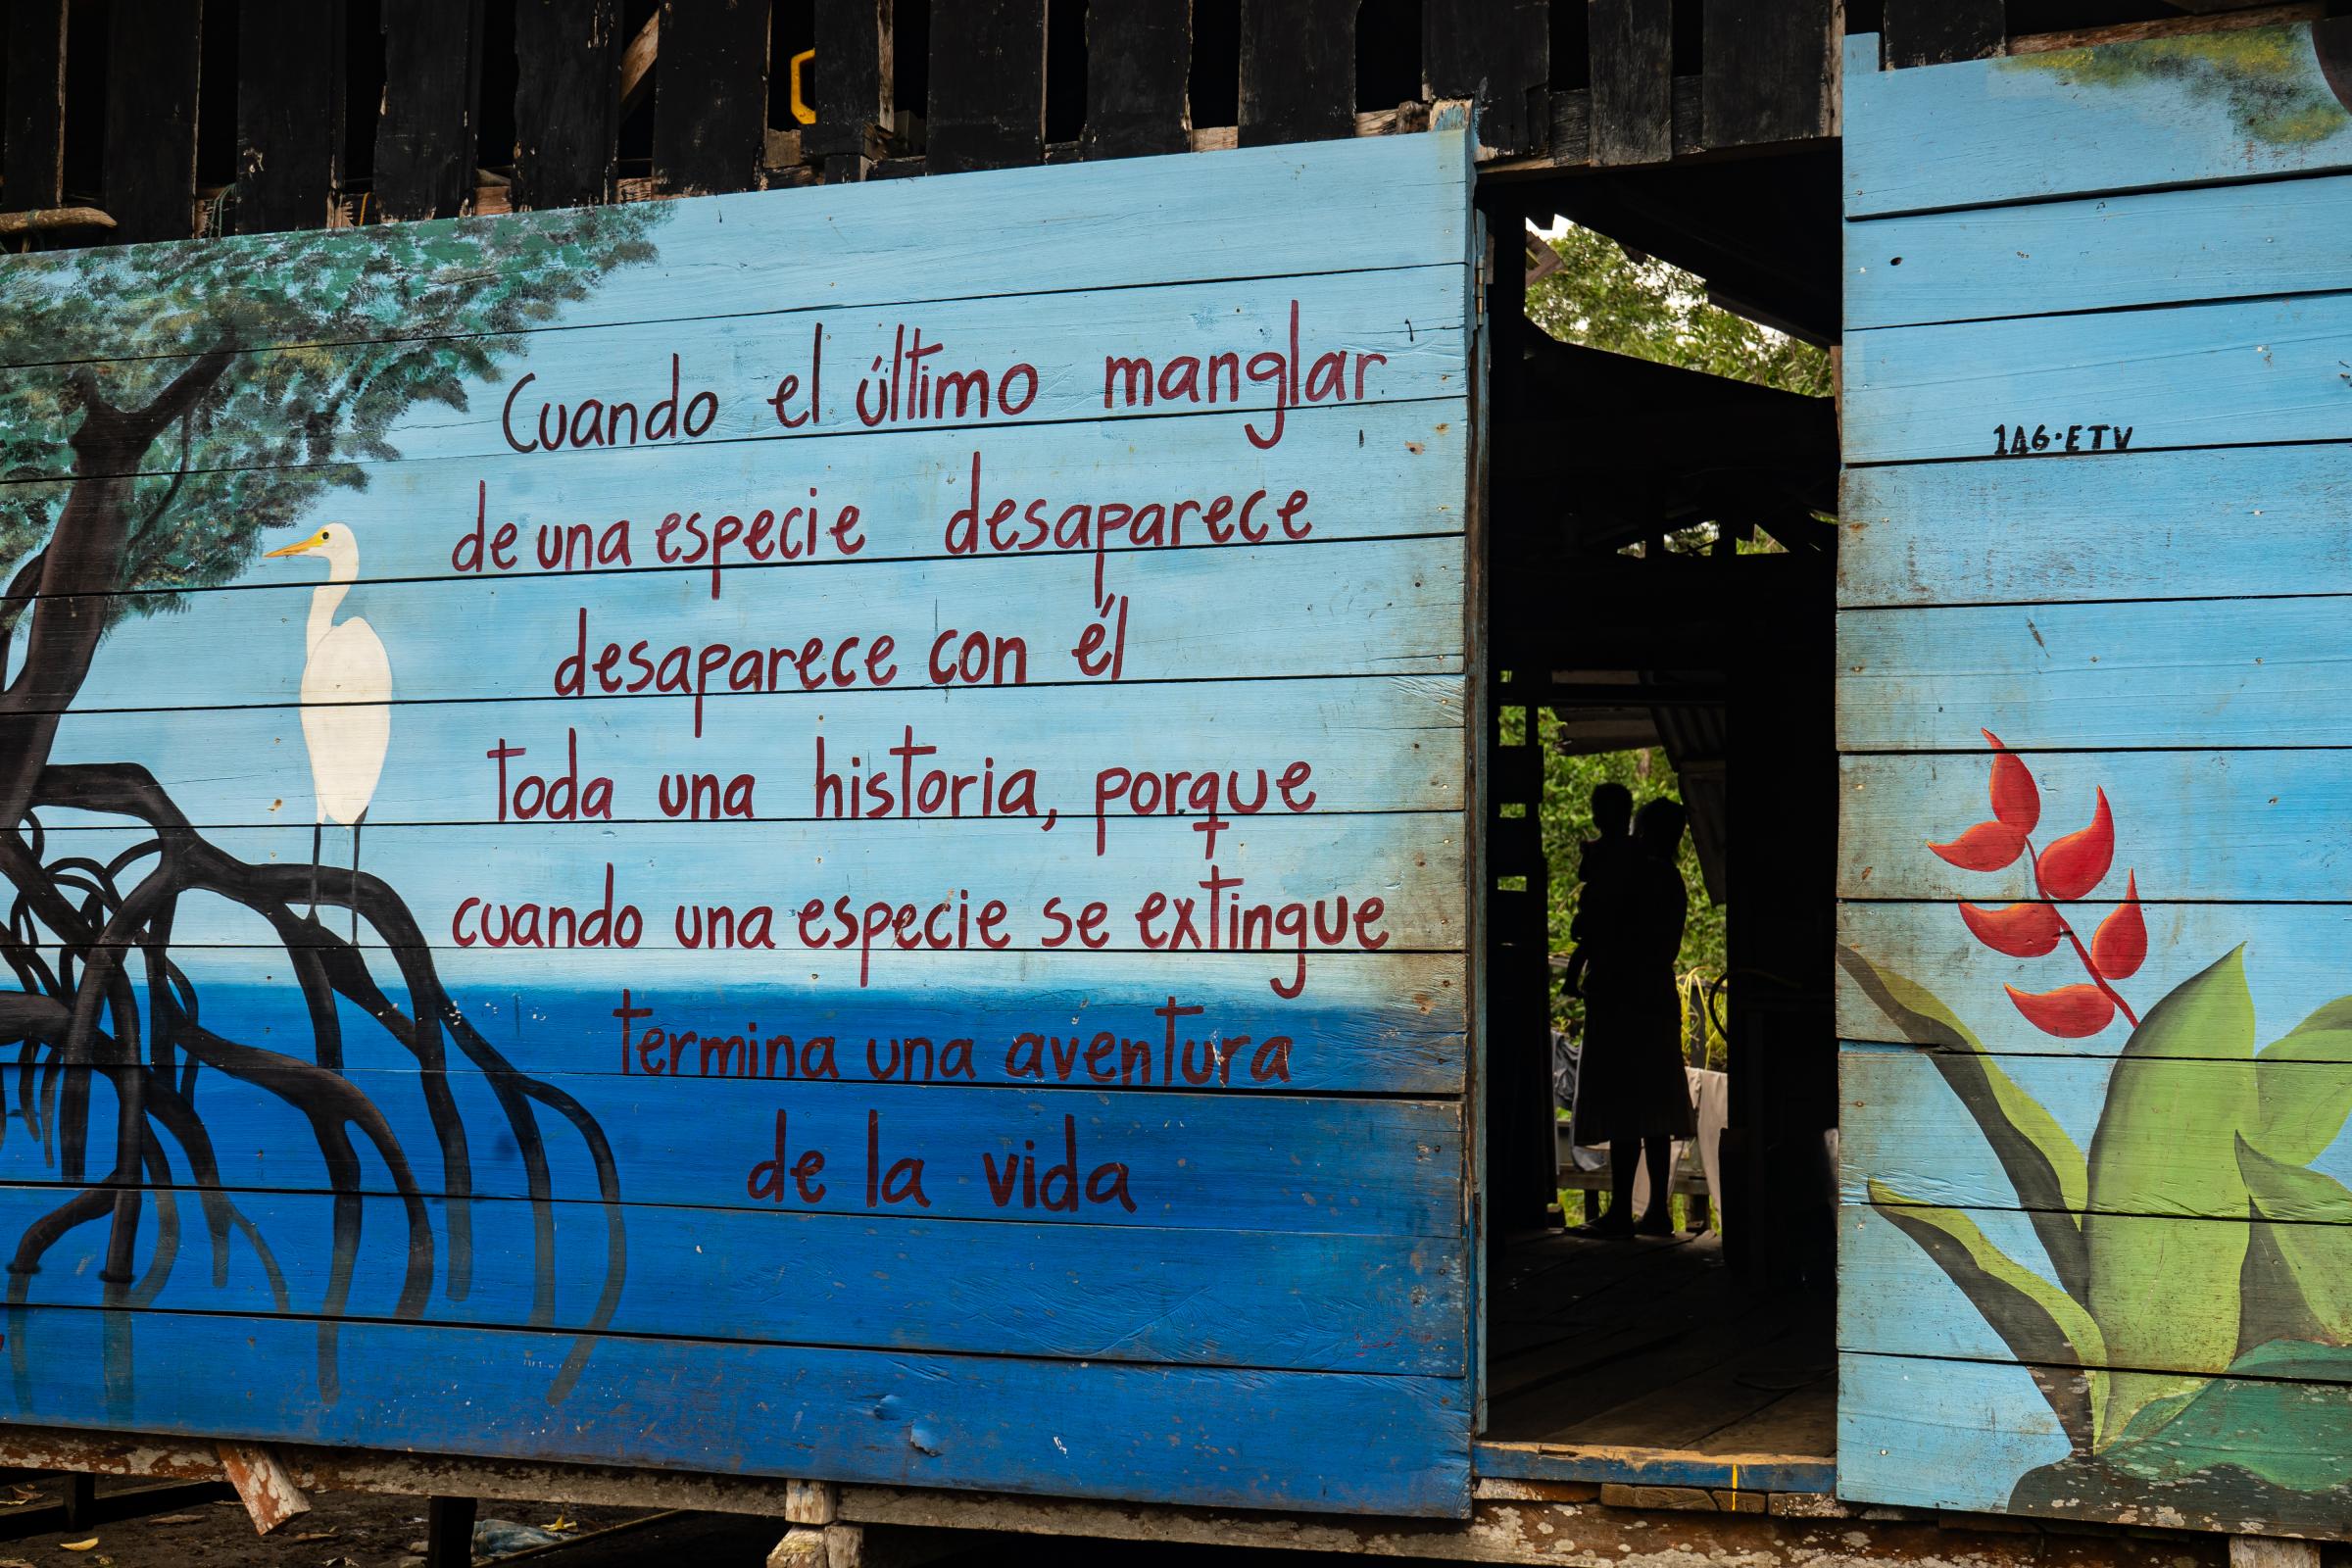 Cuando el último manglar
de una especie desaparece
desaparece con él
toda una historia, porque
cuando una especie se extingue
termina una aventura
de la vida
1A6·ETV